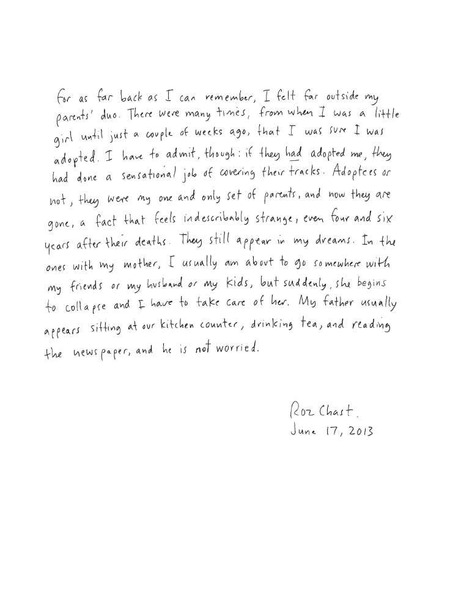 For as far back as I can remember, I felt far outside my
parents' duo. There were many times, from when I was a little
girl until just a couple of weeks ago, that I was sure I was
adopted. I have to admit, though: if they had adopted me, they
had done a sensational job of covering their tracks. Adoptees or
not, they were my one and only set of parents, and now they are
gone, a fact that feels indescribably strange, even four and six
years after their deaths. They still appear in my dreams. In the
ones with my mother, I usually am about to go somewhere with
my friends or my husband or my kids, but suddenly, she begins
to collapse and I have to take care of her. My father usually
appears sitting at our kitchen counter, drinking tea, and reading
the newspaper, and he is not worried.
Roz Chast.
June 17, 2013